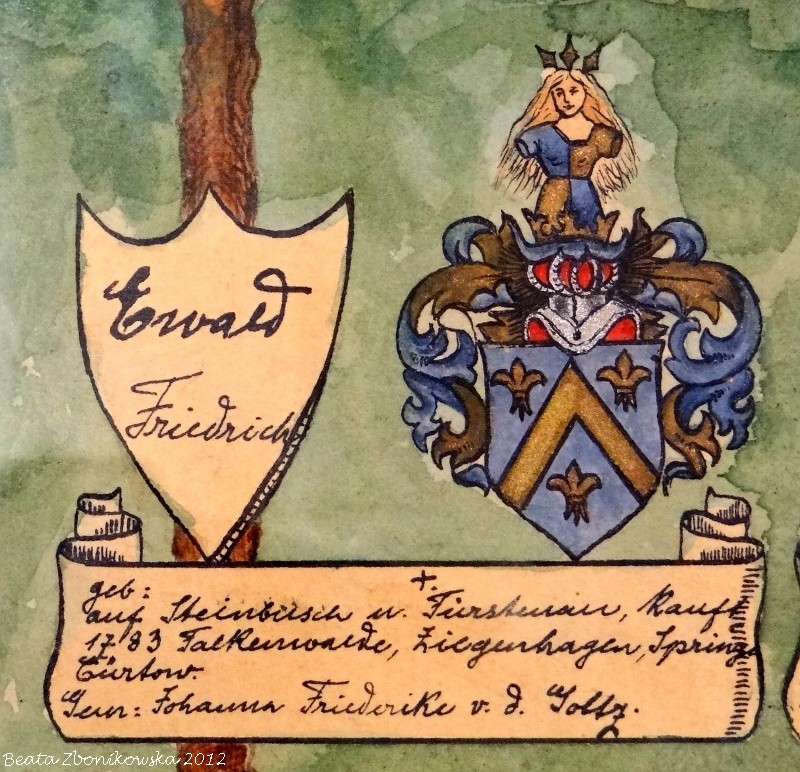 Ewald
Friedrich
geb: +.
auf Steinbusch u. Fürstenau, kauft
1783 Falkenwalde, Ziegenhagen, Springe
Cürtow.
Gem: Johanna Friederike v. d. Goltz.
Beata Zbonikowska 2012